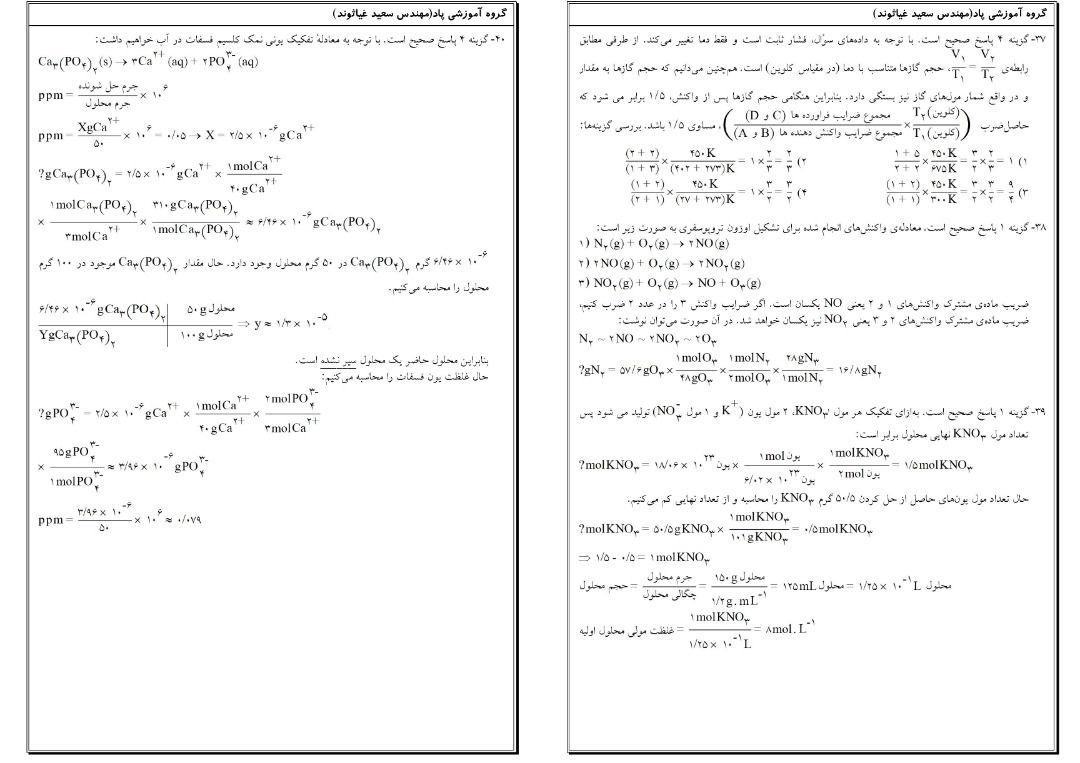 گروه آموزشی پاد(مهندس سعید غیاثوند)
۳۷- گزینه ۴ پاسخ صحیح است. با توجه به داده‌های سؤال، فشار ثابت است و فقط دما تغییر می‌کند. از طرفی مطابق
رابطه‌ی V۱/T۱ = V۲/T۲، حجم گازها متناسب با دما (در مقیاس کلوین) است. هم‌چنین می‌دانیم که حجم گازها به مقدار
و در واقع شمار مول‌های گاز نیز بستگی دارد. بنابراین هنگامی حجم گازها پس از واکنش، ۱/۵ برابر می شود که
حاصل‌ضرب (مجموع ضرایب فراورده ها (C و D) / مجموع ضرایب واکنش دهنده ها (A و B) × T۲(کلوین) / T۱(کلوین))، مساوی ۱/۵ باشد. بررسی گزینه‌ها:
۱) ۱ = ۳/۲ × ۲/۳ = (۱ + ۵)/(۲ + ۲) × ۴۵۰K/۶۷۵K
۲) (۲ + ۲)/(۱ + ۳) × ۴۵۰K/(۴۰۲ + ۲۷۳)K = ۱ × ۲/۳ = ۲/۳
۳) (۱ + ۲)/(۱ + ۱) × ۴۵۰K/۳۰۰K = ۳/۲ × ۳/۲ = ۹/۴
۴) (۱ + ۲)/(۲ + ۱) × ۴۵۰K/(۲۷ + ۲۷۳)K = ۱ × ۳/۲ = ۳/۲
۳۸- گزینه ۱ پاسخ صحیح است. معادله‌ی واکنش‌های انجام شده برای تشکیل اوزون تروپوسفری به صورت زیر است:
۱) N۲(g) + O۲(g) → ۲NO(g)
۲) ۲NO(g) + O۲(g) → ۲NO۲(g)
۳) NO۲(g) + O۲(g) → NO + O۳(g)
ضریب ماده‌ی مشترک واکنش‌های ۱ و ۲ یعنی NO یکسان است. اگر ضرایب واکنش ۳ را در عدد ۲ ضرب کنیم،
ضریب ماده‌ی مشترک واکنش‌های ۲ و ۳ یعنی NO۲ نیز یکسان خواهد شد. در آن صورت می‌توان نوشت:
N۲ ~ ۲NO ~ ۲NO۲ ~ ۲O۳
?gN۲ = ۵۷/۶gO۳ × ۱molO۳/۴۸gO۳ × ۱molN۲/۲molO۳ × ۲۸gN۲/۱molN۲ = ۱۶/۸gN۲
۳۹- گزینه ۱ پاسخ صحیح است. به‌ازای تفکیک هر مول KNO۳، ۲ مول یون (K+ و ۱ مول NO۳-) تولید می شود پس
تعداد مول KNO۳ نهایی محلول برابر است:
?molKNO۳ = ۱۸/۰۶ × ۱۰^۲۳ یون × ۱mol یون/۶/۰۲ × ۱۰^۲۳ یون × ۱molKNO۳/۲mol یون = ۱/۵molKNO۳
حال تعداد مول یون‌های حاصل از حل کردن ۵۰/۵ گرم KNO۳ را محاسبه و از تعداد نهایی کم می‌کنیم.
?molKNO۳ = ۵۰/۵gKNO۳ × ۱molKNO۳/۱۰۱gKNO۳ = ۰/۵molKNO۳
⇒ ۱/۵ - ۰/۵ = ۱molKNO۳
حجم محلول = جرم محلول/چگالی محلول = ۱۵۰g محلول/۱/۲g.mL^-۱ = ۱۲۵mL محلول = ۱/۲۵ × ۱۰^-۱ L محلول
غلظت مولی محلول اولیه = ۱molKNO۳/۱/۲۵ × ۱۰^-۱ L = ۸mol.L^-۱
گروه آموزشی پاد(مهندس سعید غیاثوند)
۴۰- گزینه ۴ پاسخ صحیح است. با توجه به معادلهٔ تفکیک یونی نمک کلسیم فسفات در آب خواهیم داشت:
Ca۳(PO۴)۲(s) → ۳Ca^۲+(aq) + ۲PO۴^۳-(aq)
ppm = جرم حل شونده/جرم محلول × ۱۰^۶
ppm = XgCa^۲+/۵۰ × ۱۰^۶ = ۰/۰۵ → X = ۲/۵ × ۱۰^-۶ gCa^۲+
?gCa۳(PO۴)۲ = ۲/۵ × ۱۰^-۶ gCa^۲+ × ۱molCa^۲+/۴۰gCa^۲+
× ۱molCa۳(PO۴)۲/۳molCa^۲+ × ۳۱۰gCa۳(PO۴)۲/۱molCa۳(PO۴)۲ ≈ ۶/۴۶ × ۱۰^-۶ gCa۳(PO۴)۲
۶/۴۶ × ۱۰^-۶ گرم Ca۳(PO۴)۲ در ۵۰ گرم محلول وجود دارد. حال مقدار Ca۳(PO۴)۲ موجود در ۱۰۰ گرم
محلول را محاسبه می‌کنیم.
۶/۴۶ × ۱۰^-۶ gCa۳(PO۴)۲ | ۵۰g محلول
YgCa۳(PO۴)۲ | ۱۰۰g محلول ⇒ y ≈ ۱/۳ × ۱۰^-۵
بنابراین محلول حاضر یک محلول سیر نشده است.
حال غلظت یون فسفات را محاسبه می‌کنیم:
?gPO۴^۳- = ۲/۵ × ۱۰^-۶ gCa^۲+ × ۱molCa^۲+/۴۰gCa^۲+ × ۲molPO۴^۳-/۳molCa^۲+
× ۹۵gPO۴^۳-/۱molPO۴^۳- ≈ ۳/۹۶ × ۱۰^-۶ gPO۴^۳-
ppm = ۳/۹۶ × ۱۰^-۶/۵۰ × ۱۰^۶ ≈ ۰/۰۷۹